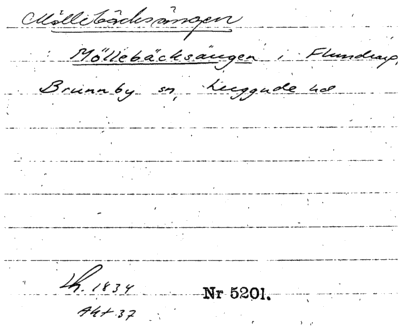 Möllebäcksängen
Möllebäcksängen i Flundrarp,
Brunnby sn, Luggude hd
Lh. 1834
Akt 37
Nr 5201.